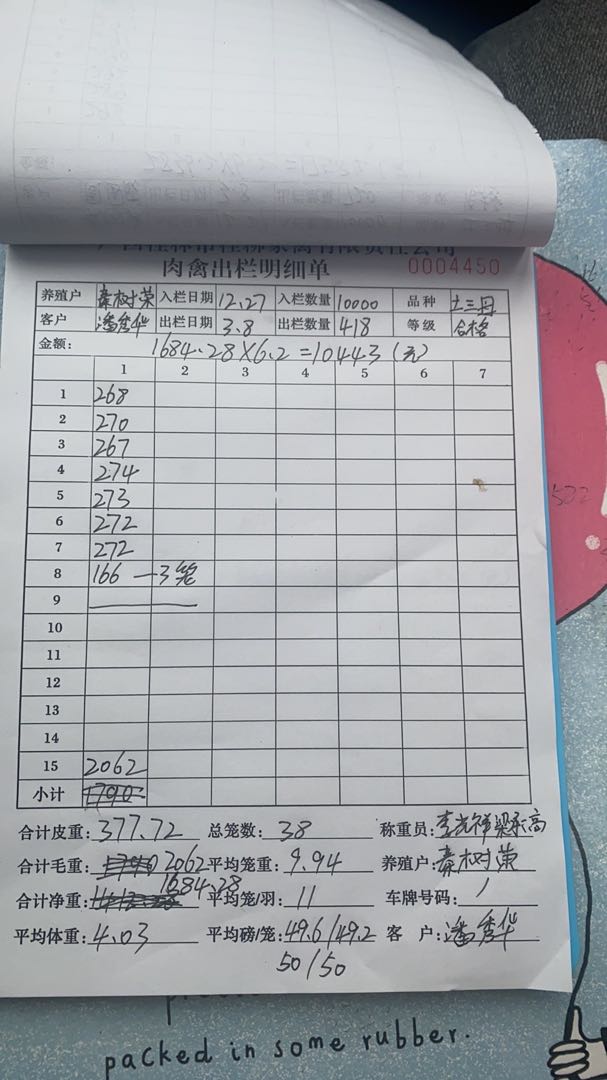 肉禽出栏明细单 0004450
养殖户 秦树荣 入栏日期 12.27 入栏数量 10000 品种 土三月
客户 潘秀华 出栏日期 3.8 出栏数量 418 等级 合格
金额: 1684.28×6.2=10443(元)
1 2 3 4 5 6 7
1 268
2 270
3 267
4 274
5 273
6 272
7 272
8 166 — 3笼
9
10
11
12
13
14
15 2062
小计 1790
合计皮重: 377.72 总笼数: 38 称重员: 李光祥
合计毛重: 1790 2062 平均笼重: 9.94 养殖户: 秦树荣
合计净重: 1684.28 平均笼/羽: 11 车牌号码: /
平均体重: 4.03 平均磅/笼: 49.6/49.2 客 户: 潘秀华
50/50
packed in some rubber.